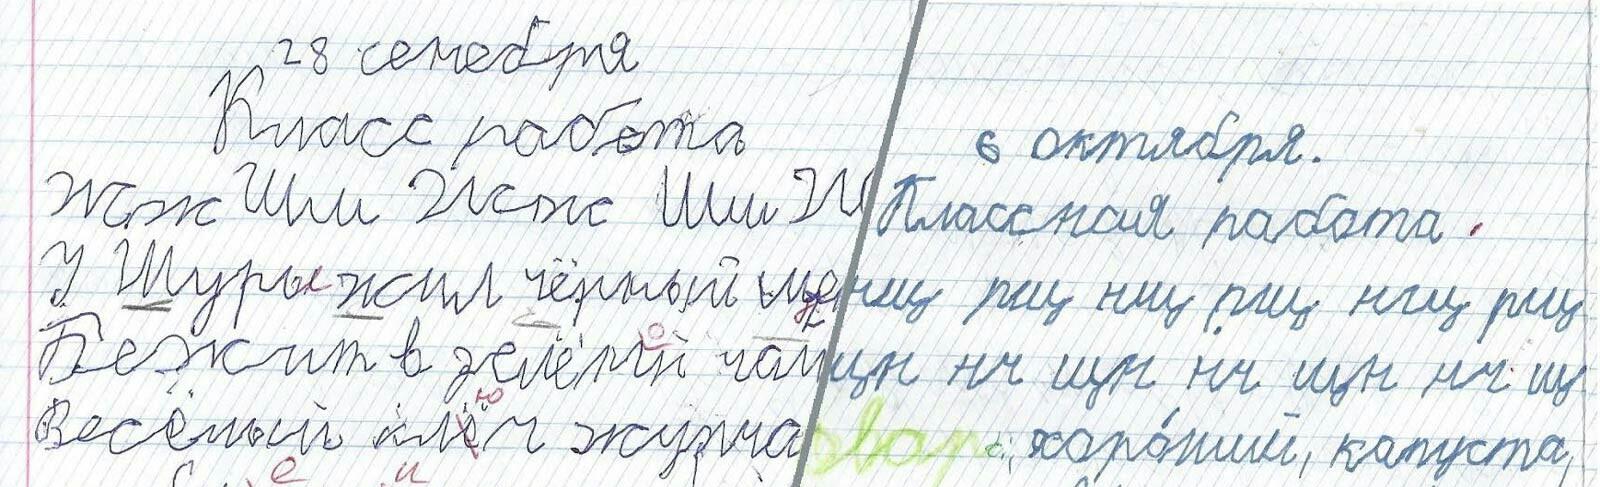 28 семебря
Класс работа
Жж Ши Жж Ши Ж
У Шуры жил чёрный ще
Бежит в зелёный чащ
Весёлый ключ журча
6 октября.
Классная работа.
нщ рщ нщ рщ нщ рщ
щн нч щн нч щн нч щ
хоро́ший, капуста,